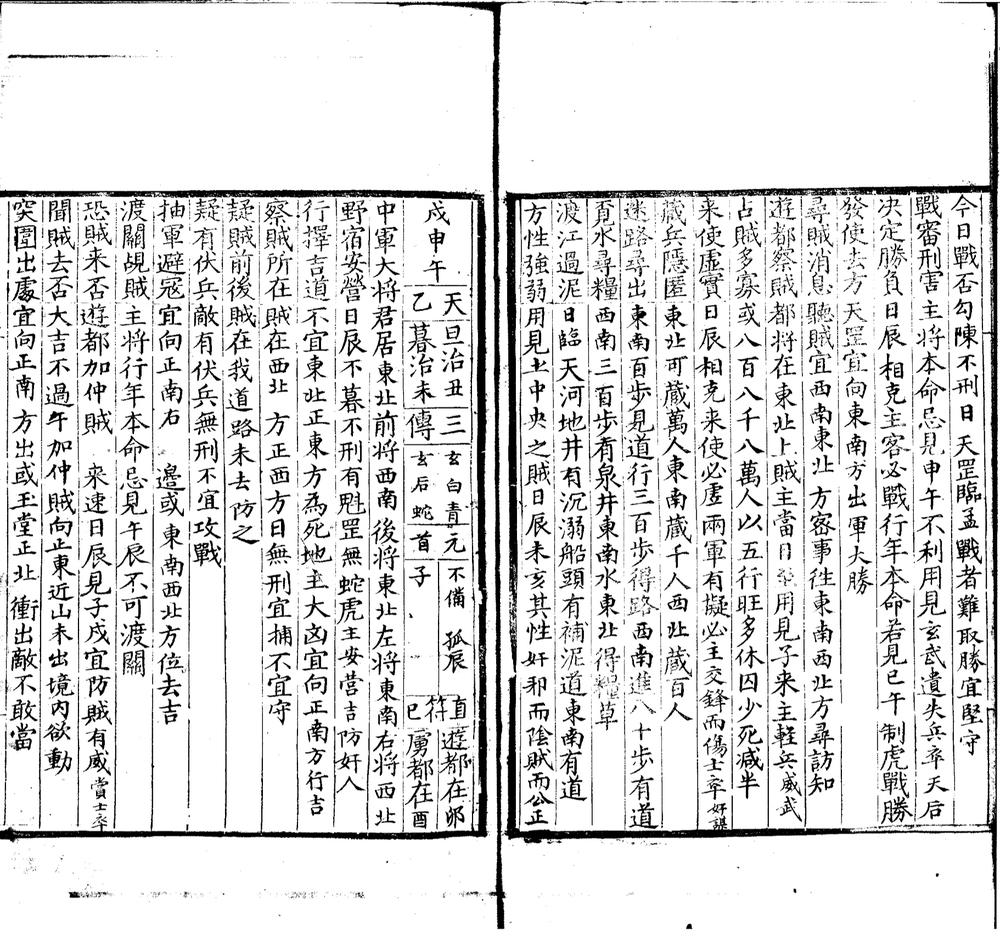 今日戰否勾陳不刑日 天罡臨孟戰者難取勝宜堅守
戰審刑害主將本命忌見申午不利用見玄武遺失兵卒天后
决定勝負日辰相克主客必戰行年本命若見巳午 制虎戰勝
發使去方 天罡宜向東南方出軍大勝
尋賊消息聽賊宜西南東北 方客事徃東南西北方尋訪知
遊都察賊都將在東北上賊主當日 用見子来主軽兵威武
占賊多寡或八百八千八萬人以五行旺多休囚少死减半
来使虛實日辰相克来使必虛兩軍有擬必主交鋒而傷士卒好謀
藏兵隱匿東北可藏萬人東南藏千人西北藏百人
迷路尋出東南百歩見道行三百歩得路西南進八十歩有道
覔水尋糧西南三百歩有泉井東南水東北得糧草
渡江過泥日臨天河地井有沉溺船頭有補泥道東南有道
方性強弱用見土中央之賊日辰未亥其性奸邪而隂賊而公正
戍申午 天乙 旦治丑 暮治未 三傳 玄白青元 玄后蛇首 不備 孤辰 子 直符巳 遊都在卯 虜都在酉
中軍大将君居東北前將西南後將東北左將東南右將西北
野宿安營日辰不暮不刑有魁罡無蛇虎主安营吉防奸人
行擇吉道不宜東北正東方為死地主大凶宜向正南方行吉
察賊所在賊在西北 方正西方日無刑宜捕不宜守
疑賊前後賊在我道路未去防之
疑有伏兵敵有伏兵無刑不宜攻戰
抽軍避冦宜向正南右 邉或東南西北方位去吉
渡關覘賊主將行年本命忌見午辰不可渡關
恐賊来否遊都加仲賊 来速日辰見子戍宜防賊有威賞士卒
聞賊去否大吉不過午加仲賊向正東近山未出境內欲動
突圍出處宜向正南方出或玉堂正北 衝出敵不敢當